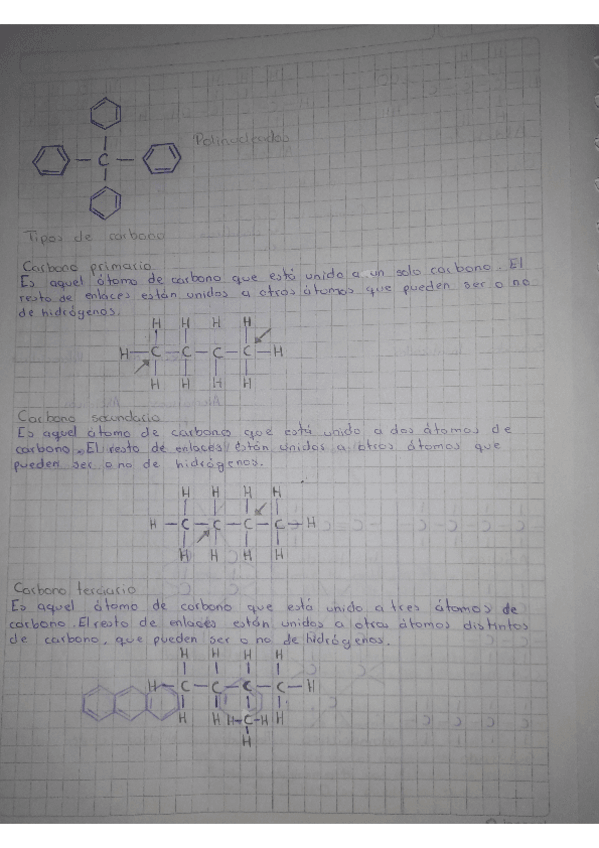 Polinucleados
Tipos de carbono
Carbono primario
Es aquel átomo de carbono que está unido a un solo carbono. El
resto de enlaces están unidos a otros átomos que pueden ser o no
de hidrógenos.
H H H H
H—C—C—C—C—H
H H H H
Carbono secundario
Es aquel átomo de carbono que está unido a dos átomos de
carbono. El resto de enlaces están unidos a otros átomos que
pueden ser o no de hidrógenos.
H H H H
H—C—C—C—C—H
H H H H
Carbono terciario
Es aquel átomo de carbono que está unido a tres átomos de
carbono. El resto de enlaces están unidos a otros átomos distintos
de carbono, que pueden ser o no de hidrógenos.
H H H H
H—C—C—C—C—H
H H H—C—H H
H